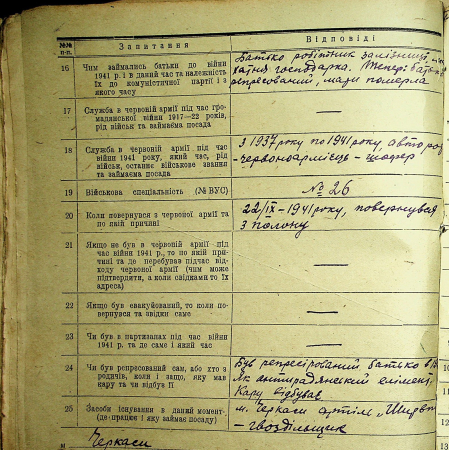 №№ п-п.
Запитання
Відповіді
16
Чим займались батьки до війни
1941 р. і в даний час та належність
їх до комуністичної партії і з
якого часу
Батько робітник залізниці,
господарка. Тепер батько
репресований, мати померла
17
Служба в червоній армії під час гро-
мадянської війни 1917—22 років,
рід військ та займаєма посада
—
18
Служба в червоній армії під час
війни 1941 року, який час, рід
військ, останнє військове звання
та займаєма посада
з 1937 року по 1941 року, авто рота
-червоноармієць - шофер
19
Військова спеціальність (№ ВУС)
№ 26
20
Коли повернувся з червоної армії та
по якій причині
22/IX - 1941 року, повернувся
з полону
21
Якщо не був в червоній армії під
час війни 1941 р., то по якій при-
чині та де перебував підчас від-
ходу червоної армії (чим може
підтвердити, а коли свідками то їх
адреса)
—
22
Якщо був евакуйований, то коли по-
вернувся та звідки саме
—
23
Чи був в партизанах під час війни
1941 р. та де саме і який час
—
24
Чи був репресований сам, або хто з
родичів, коли і защо, яку мав
кару та чи відбув її
Був репресірований батько в
Як антирадянський елімент,
Кару відбував
25
Засоби існування в даний момент-
(де працює і яку займає посаду)
м. Черкаси артіль
- гвоздільщик
Черкаси